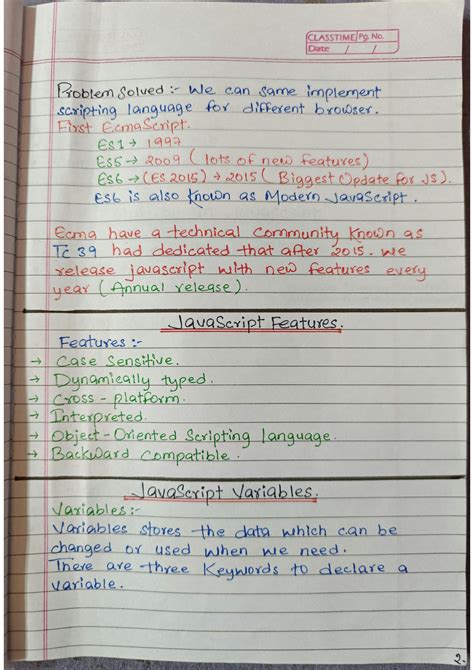 CLASSTIME Pg. No.
Date / /
Problem Solved :- We can same implement
scripting language for different browser.
First EcmaScript.
ES1 → 1997
ES5 → 2009 ( lots of new features)
ES6 → (ES 2015) → 2015 ( Biggest Update for JS).
ES6 is also known as Modern JavaScript.
Ecma have a technical community known as
TC 39 had dedicated that after 2015. we
release javascript with new features every
year ( Annual release).
JavaScript Features.
Features :-
→ Case Sensitive.
→ Dynamically typed.
→ Cross - platform.
→ Interpreted.
→ Object-Oriented Scripting language.
→ Backward Compatible.
JavaScript Variables.
Variables :-
Variables stores the data which can be
changed or used when we need.
There are three Keywords to declare a
variable.
2.